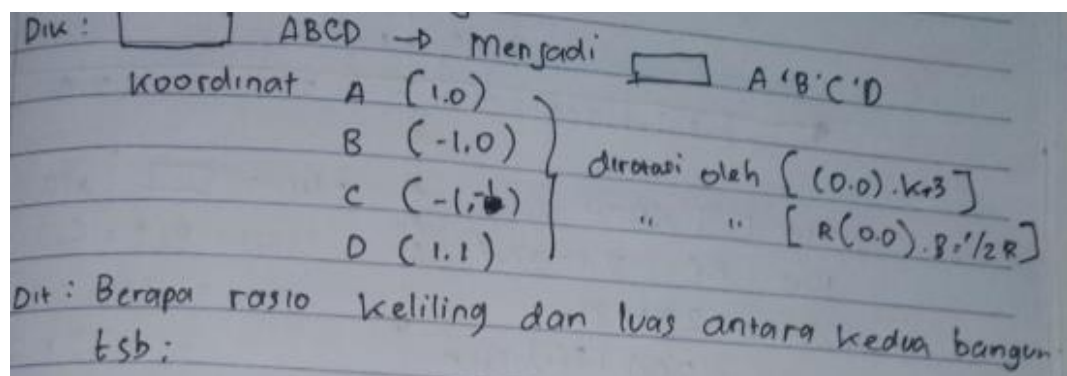 Dik : ABCD → Menjadi A'B'C'D
Koordinat A (1.0)
B (-1.0)
C (-1,-1)
D (1.1)
dirotasi oleh [(0.0).k=3]
" " [R(0.0).B=1/2R]
Dit : Berapa rasio keliling dan luas antara kedua bangun
tsb :